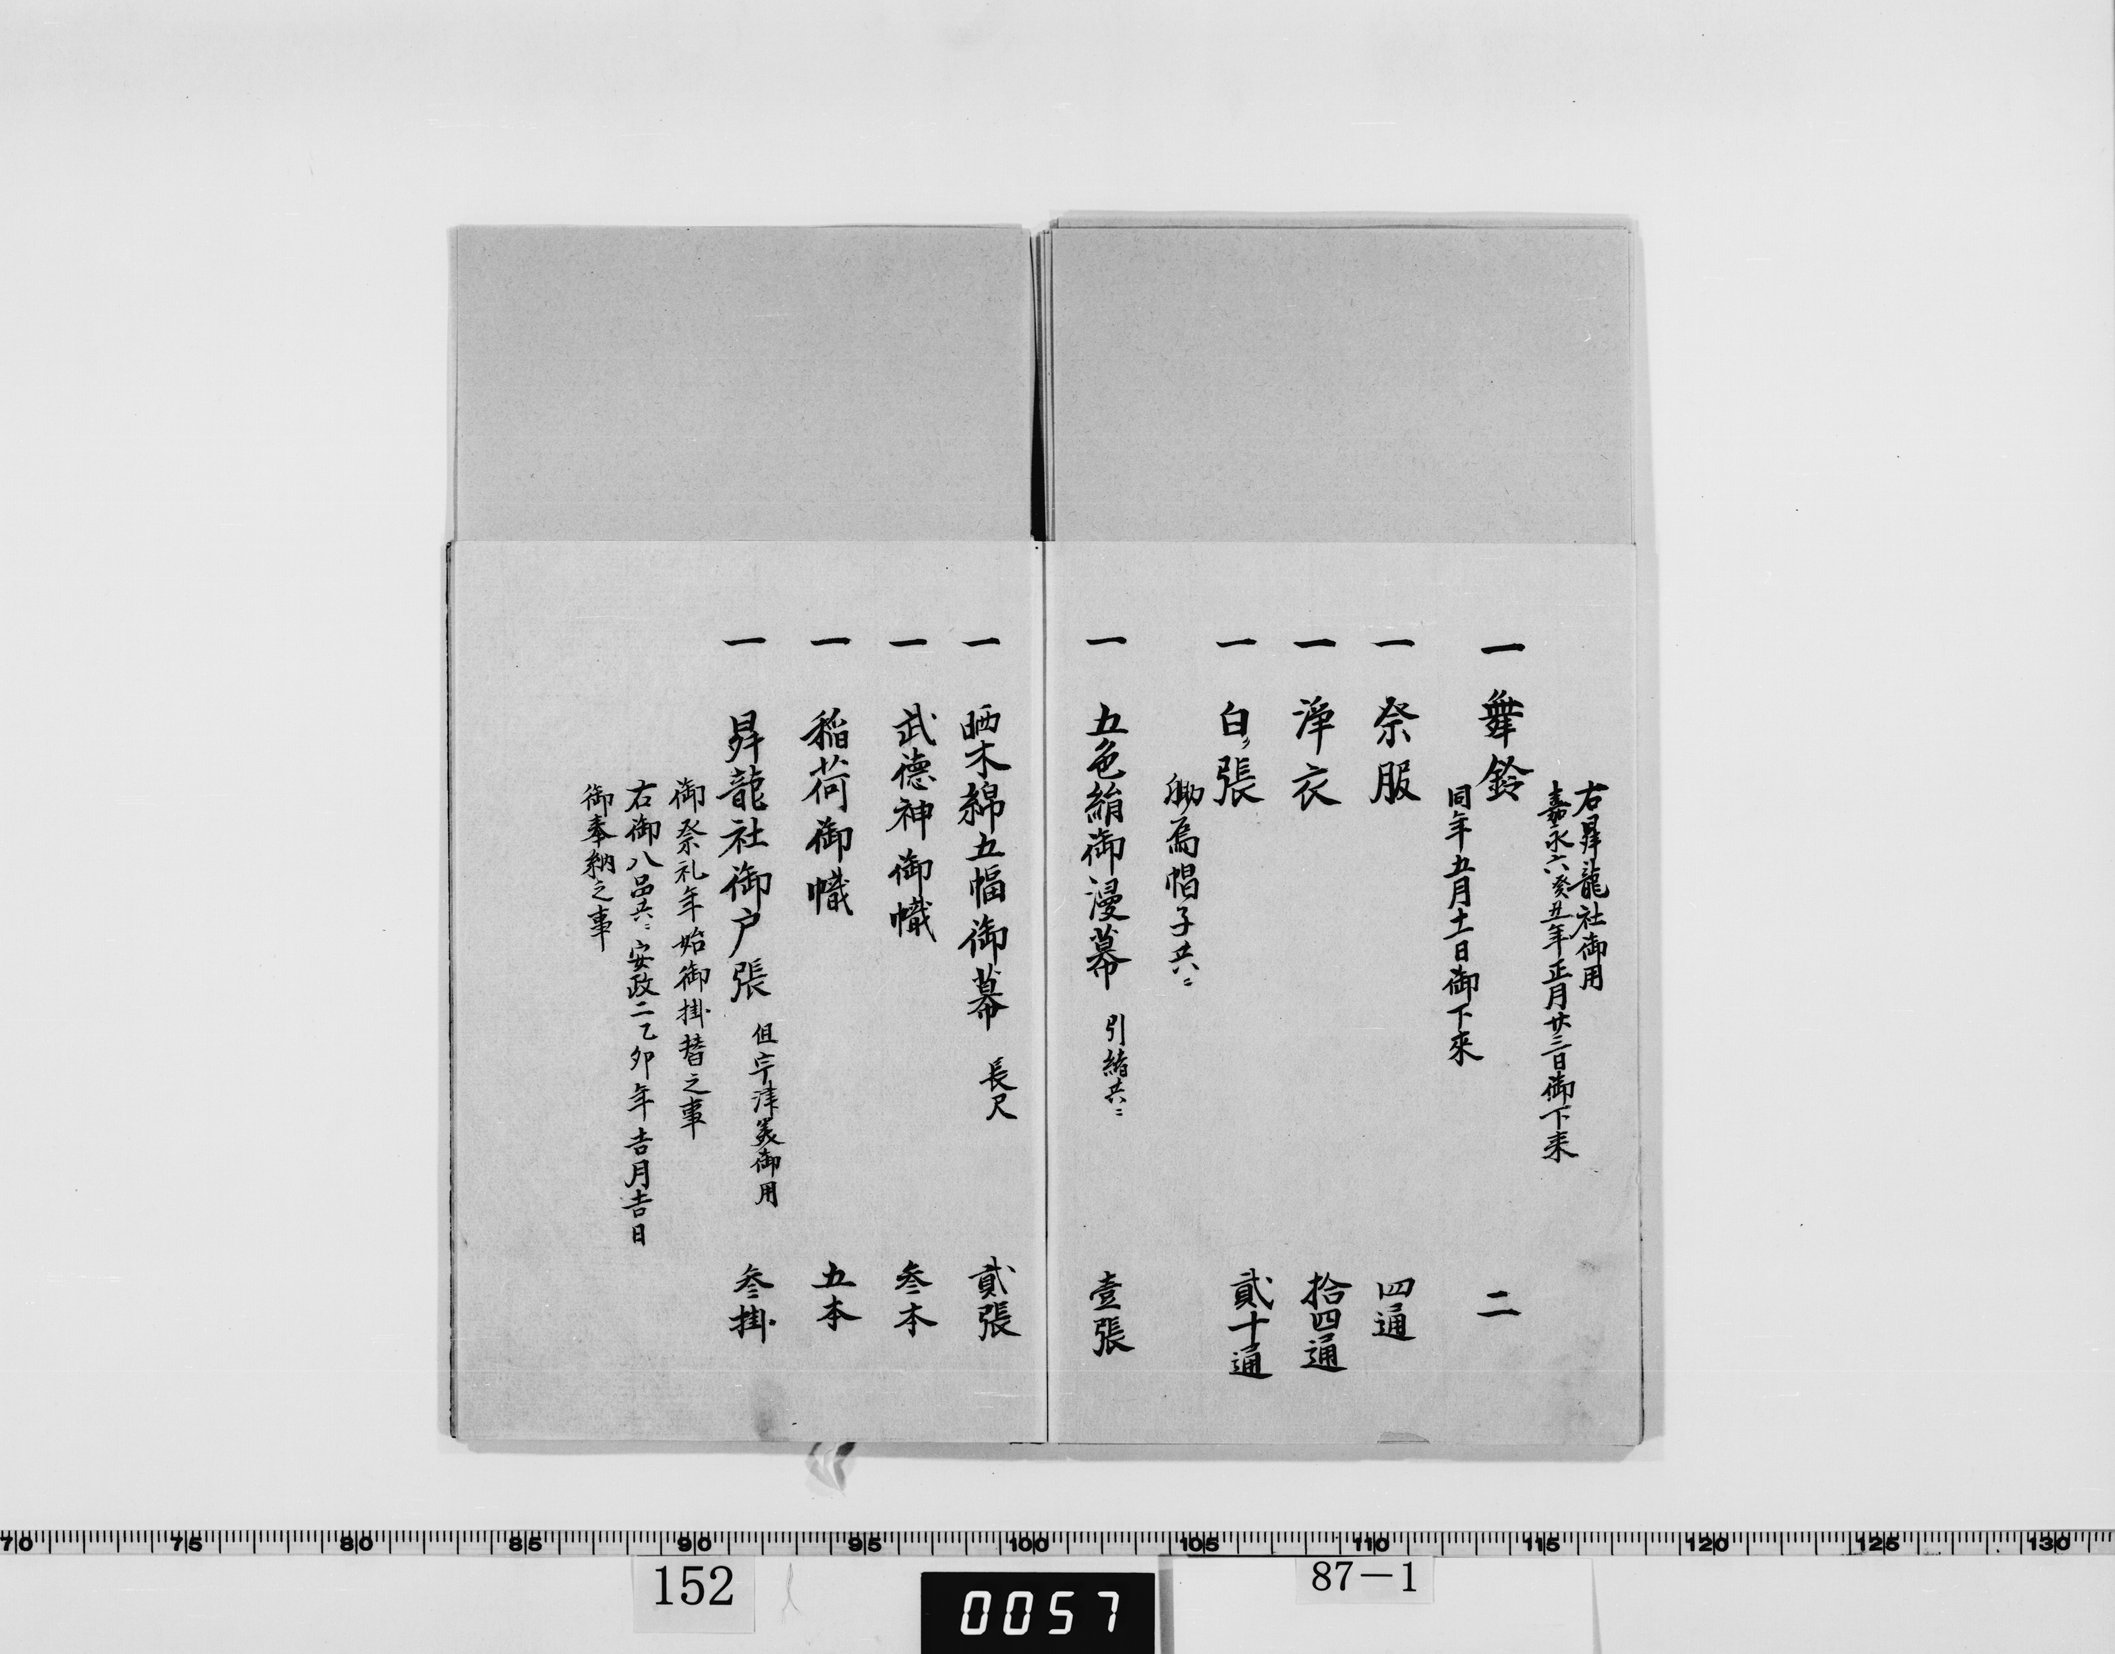 右昇龍社御用
嘉永六癸丑年正月廿三日御下来
一 舞鈴 二
同年五月十一日御下來
一 祭服 四通
一 淨衣 拾四通
一 白張 貳十通
烏帽子共ニ
一 五色絹御漫幕 引綃共ニ 壹張
一 晒木綿五幅御幕 長尺 貳張
一 武德神御幟 叄本
一 稲荷御幟 五本
一 昇龍社御户張 但宇津美御用 叄掛
御祭礼年始御掛替之事
右御八品共ニ安政二乙卯年吉月吉日
御奉納之事
70 75 80 85 90 95 100 105 110 115 120 125 130
152
0057
87-1